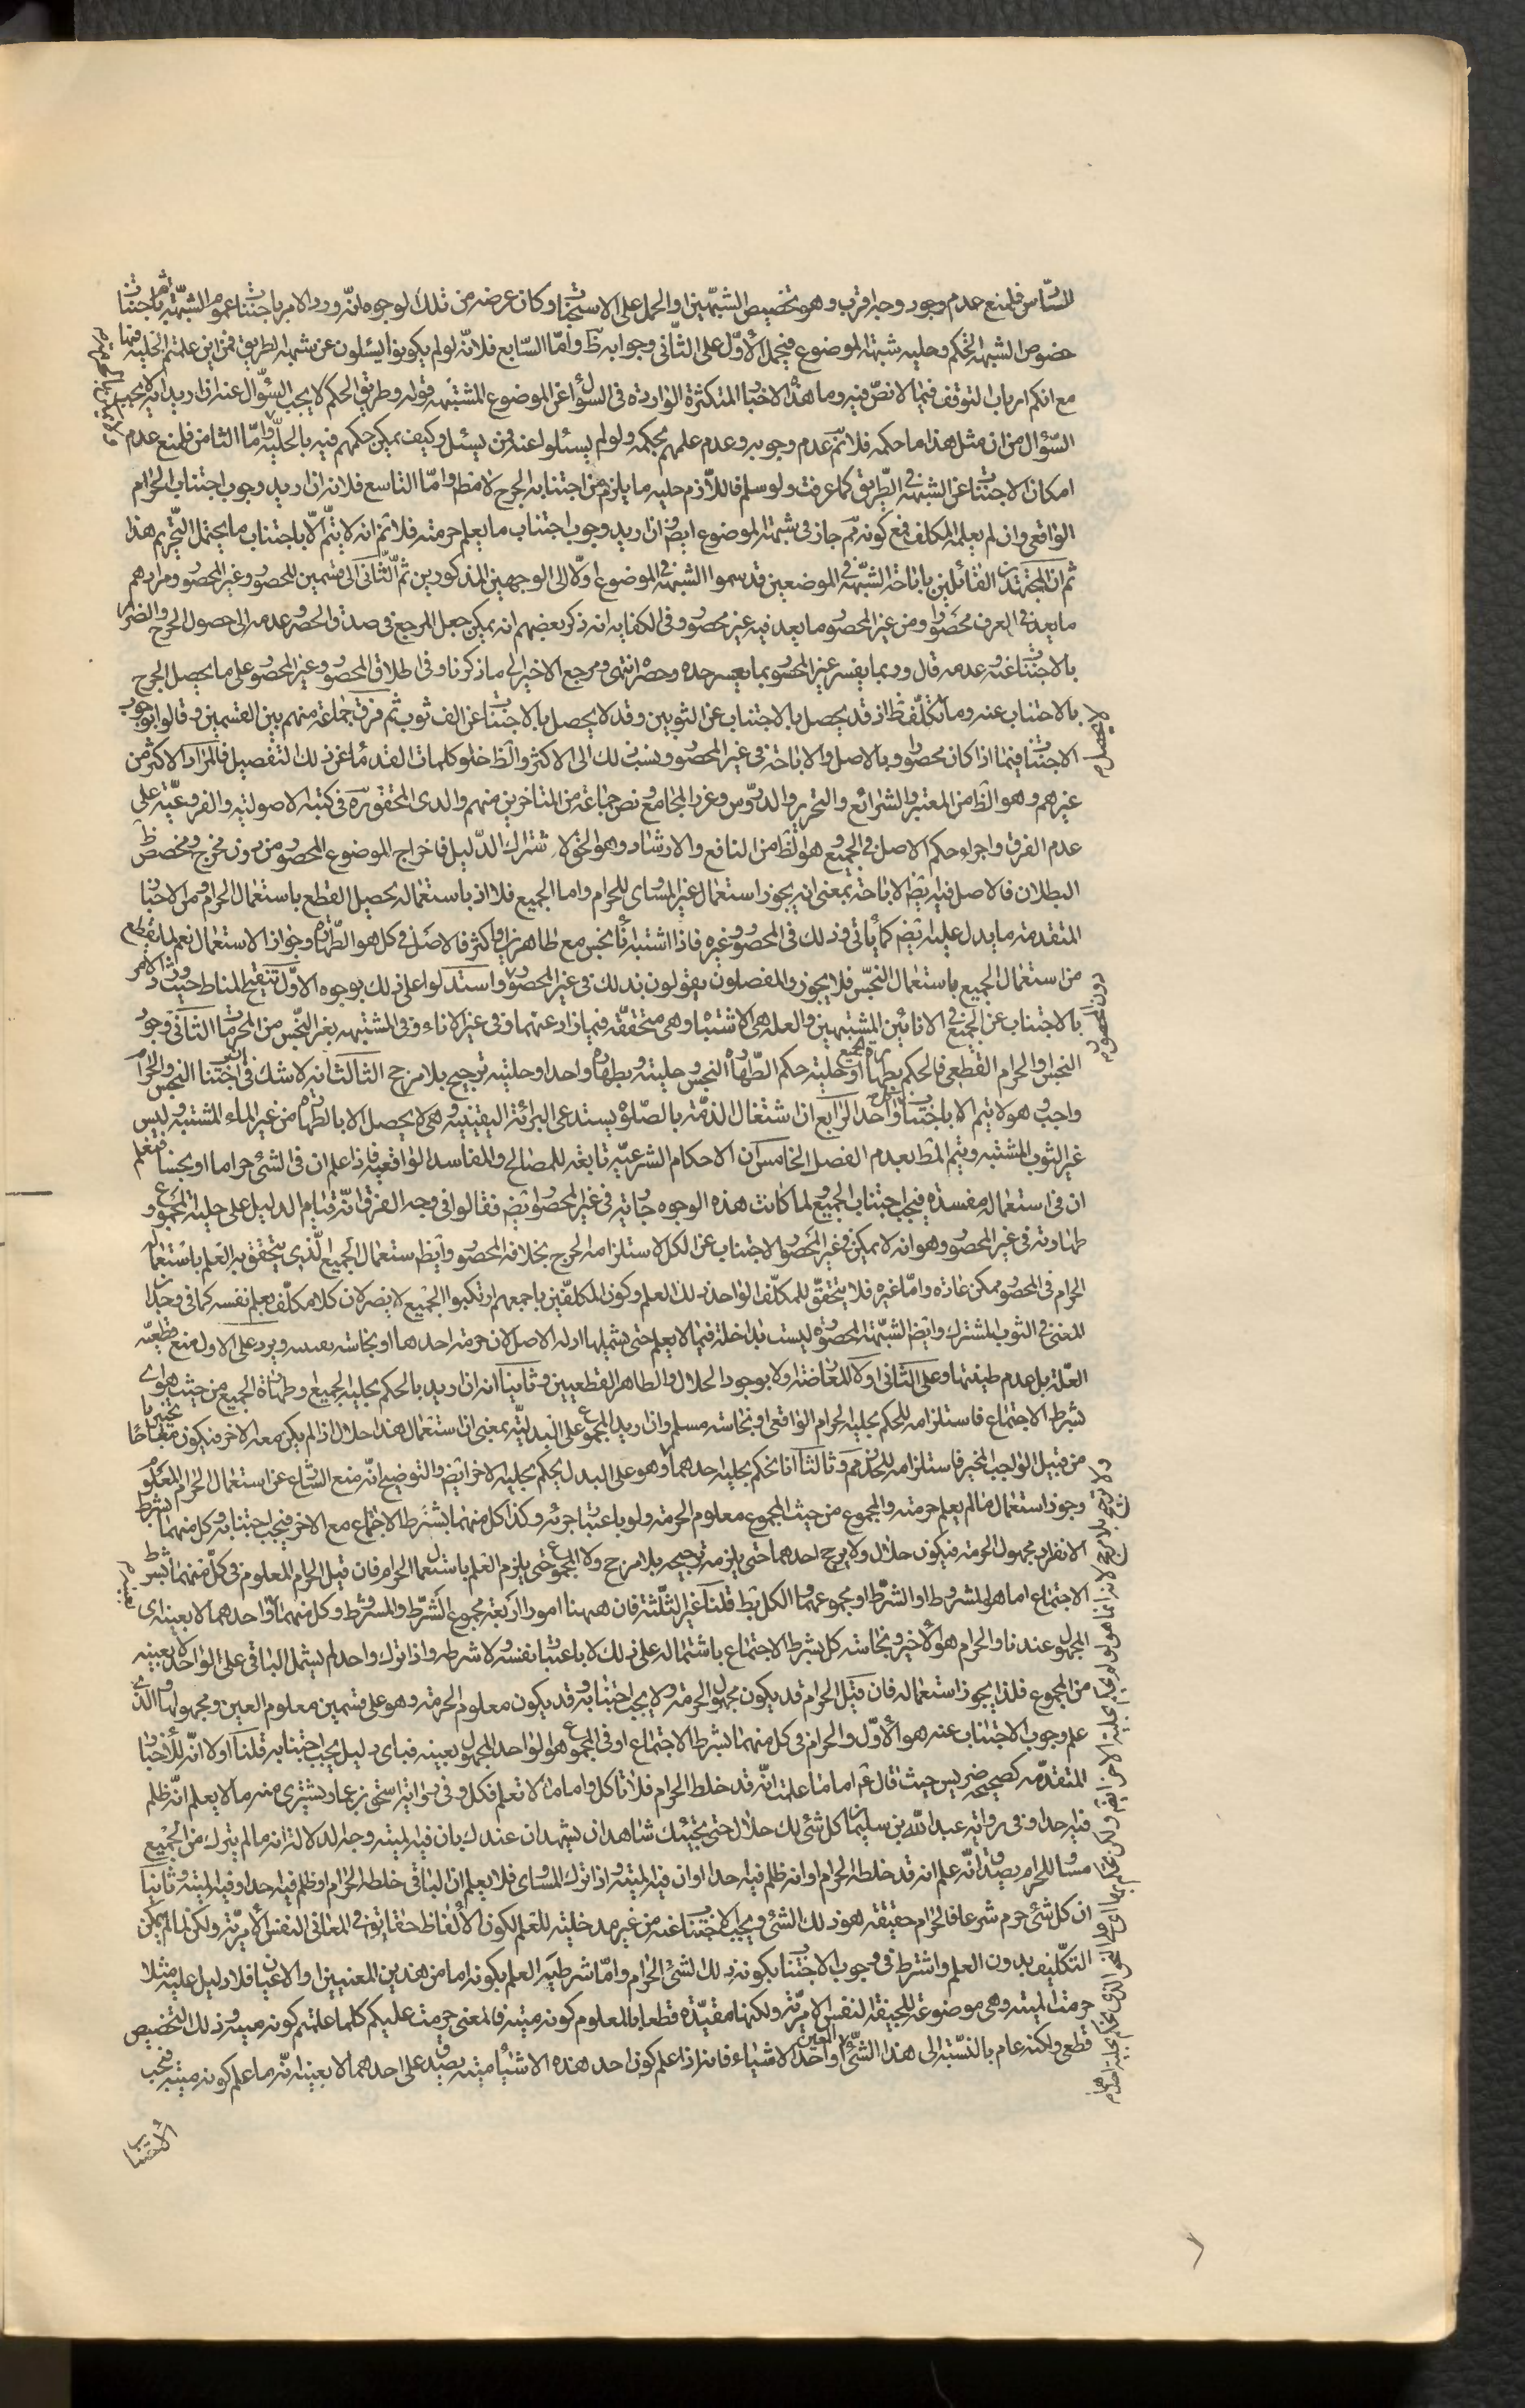 السادس فلمنع عدم وجود وجه اقرب وهو تخصيص الشبهتين او الحمل على الاستحباب وكان غرضه من تلك الوجوه انه ورد الامر باجتناب عموم الشبهة ثم باجتناب
خصوص الشبهة الحكم وحلية شبهة الموضوع فيحمل الاول على الثاني وجوابه ظ واما السابع فلانه لو لم يكونوا يسئلون عن شبهة الطريق فمن اين علمتم الحلية فيها
مع انكم ارباب التوقف فيما لا نص فيه وما هذه الاخبار المتكثرة الواردة في السؤال عن الموضوع المشتبه قوله وطريق الحكم لا يجب السؤال عنه ان اريد انه لا يجب
السؤال من ان مثل هذا ما حكمه فلا نم عدم وجوبه وعدم علمهم بحكمه ولو لم يسئلوا عنه فمن يسئل وكيف يمكن حكمهم فيه بالحلية واما الثامن فلمنع عدم
امكان الاجتناب عن الشبهة في الطريق كما عرفت ولو سلم فاللازم حلية ما يلزم من اجتنابه الحرج لا مط واما التاسع فلانه ان اريد وجوب اجتناب الحرام
الواقعي وان لم يعلمه المكلف فمع كونه نم جاز في شبهة الموضوع ايض وان اريد وجوب اجتناب ما يعلم حرمته فلا نم انه لا يتم الا باجتناب ما يحتمل التحريم هذا
ثم ان المجتهدين القائلين باباحة الشبهة في الموضعين قد قسموا الشبهة في الموضوع اولا الى الوجهين المذكورين ثم الثاني الى قسمين المحصور وغير المحصور ومرادهم
ما يعد في العرف محصورا ومن غير المحصور ما يعد فيه غير محصور وفي الكفاية انه ذكر بعضهم انه يمكن جعل المرجع في صدق الحصر وعدمه الى حصول الحرج والضرر
بالاجتناب عنه وعدمه قال وربما يفسر غير المحصور بما يعسر عده وحصره انتهى ومرجع الاخير الى ما ذكرنا وفي اطلاق المحصور وغير المحصور على ما يحصل الحرج
بالاجتناب عنه وما تكلف ظ اذ قد يحصل بالاجتناب عن الثوبين وقد لا يحصل بالاجتناب عن الف ثوب ثم فرق جماعة منهم بين القسمين وقالوا بوجوب
الاجتناب فيما اذا كان محصورا وبالاصل والاباحة في غير المحصور ونسب ذلك الى الاكثر والظ خلو كلمات القدماء عن ذلك التفصيل فالمراد الاكثر من
غيرهم وهو الظ من المعتبر والشرائع والتحرير والدروس وغرد المجامع ونص جماعة من المتاخرين منهم والدي المحقق ره في كتبه الاصولية والفروعية على
عدم الفرق واجراء حكم الاصل في الجميع وهو الظ من النافع والارشاد وهو الحق لاشتراك الدليل فاخراج الموضوع المحصور من دون مخرج ومخصص ظ
البطلان فالاصل فيه ايض الاباحة بمعنى انه يجوز استعمال غير المساوي للحرام واما الجميع فلا اذ باستعماله يحصل القطع باستعمال الحرام ومن الاخبار
المتقدمة ما يدل عليه ايض كما ياتي وذلك في المحصور وغيره فاذا اشتبه اناء نجس مع طاهر او اكثر فالاصل في كل هو الطهارة وجواز الاستعمال نعم لما يقطع
من استعمال الجميع باستعمال النجس فلا يجوز والمفصلون يقولون بذلك في غير المحصور واستدلوا على ذلك بوجوه الاول تنقيح المناط حيث ورد الامر
بالاجتناب عن الجميع في الانائين المشتبهين والعلة هي الاشتباه وهي متحققة فيما زاد عنهما وفي غير الاناء وفي المشتبه بغير النجس من المحرمات الثاني وجود
النجس او الحرام القطعي فالحكم بطهارة الجميع او حلية حكم الطهارة النجس وحليته وبطهارة واحد او حليته ترجيح بلا مرجح الثالث انه لا شك في اجتناب النجس والحرام
واجب وهو لا يتم الا باجتناب كل واحد الرابع ان اشتغال الذمة بالصلوة يستدعي البرائة اليقينية وهي لا يحصل الا بالطهارة من غير الماء المشتبه ولبس
غير الثوب المشتبه ويتم المط بعدم الفصل الخامس ان الاحكام الشرعية تابعة للمصالح والمفاسد الواقعية فاذا علم ان في الشئ حراما او نجسا فنعلم
ان في استعماله مفسدة فيجب اجتناب الجميع ولما كانت هذه الوجوه جارية في غير المحصور ايض فقالوا في وجه الفرق انه قيام الدليل على حلية المجموع و
طهارته في غير المحصور وهو انه لا يمكن في غير المحصور الاجتناب عن الكل لاستلزامه الحرج بخلافه المحصور وايض استعمال الجميع الذي يتحقق به العلم باستعمال
الحرام في المحصور ممكن عادة واما غيره فلا يتحقق للمكلف الواحد ذلك العلم وكون المكلفين باجمعهم ارتكبوا الجميع لا يضر لان كلا مكلف بعلم نفسه كما في وجدان
المني في الثوب المشترك وايض الشبهة المحصورة ليست بداخلة فيما لا يعلم حتى يشملها ادلة الاصل لان حرمة احدهما او نجاسته يقينية ويرد على الاول منع قطعية
العلة بل عدم ظنيتها وعلى الثاني اولا المعارضة اولا بوجود الحلال والطاهر القطعيين وثانيا انه ان اريد بالحكم بحلية الجميع وطهارة الجميع من حيث هو اي
بشرط الاجتماع فاستلزامه للحكم بحلية الحرام الواقعي او نجاسته مسلم وان اريد المجموع على البدلية بمعنى ان استعمال هذا حلال اذا لم يكن معه الاخر فيكون مباحا تخييريا
من قبيل الواجب المخير فاستلزامه للمحذور مم وثالثا انا نحكم بحلية احدهما وهو على البدل يحكم بحلية الاخر ايض والتوضيح انه منع الشارع عن استعمال الحرام المعلوم
وجوز استعمال ما لم يعلم حرمته والمجموع من حيث المجموع معلوم الحرمة ولو باعتبار جزئه وكذا كل منهما بشرط الاجتماع مع الاخر فيجب اجتنابه وكل منهما بشرط
الانفراد مجهول الحرمة فيكون حلال ولا يرجح احدهما حتى يلزمه ترجيحه بلا مرجح ولا المجموع حتى يلزم العلم باستعمال الحرام فان قيل الحرام المعلوم في كل منهما بشرط
الاجتماع اما هو المشروط او الشرط او مجموعهما والكل بط قلنا غير الثلثة فان ههنا امورا اربعة مجموع الشرط والمشروط وكل منهما واحدهما لا بعينه اي
المجهول عندنا والحرام هو الاخير ونجاسته كل بشرط الاجتماع باشتماله على ذلك لا باعتبار نفسه ولا شرطه واذا ترك واحد لم يشمل الباقي على الواحد لا بعينه
من المجموع فلذا يجوز استعماله فان قيل الحرام قد يكون مجهول الحرمة ولا يجب اجتنابه وقد يكون معلوم الحرمة وهو على قسمين معلوم العين ومجهولها والذي
علم وجوب الاجتناب عنه هو الاول والحرام في كل منهما بشرط الاجتماع او في المجموع هو الواحد المجهول بعينه فباي دليل يجب اجتنابه قلنا اولا انه للاخبار
المتقدمة كصحيحة ضريس حيث قال ع اما ما علمت انه قد خلط الحرام فلا تاكل واما ما لا تعلم فكل وفي رواية اسحق بن عمار يشتري منه ما لا يعلم انه ظلم
فيه احدا وفي رواية عبد الله بن سليمان كل شئ لك حلال حتى يجيئك شاهدان يشهدان عندك بان فيه ميتة وجه الدلالة انه ما لم يترك من الجميع
مساو للحرام يصدق انه علم انه قد خلطه الحرام او انه ظلم فيه احدا او ان فيه الميتة واذا ترك المساوي فلا يعلم ان الباقي خلطه الحرام او ظلم فيه احد او فيه الميتة وثانيا
ان كل شئ حرم شرعا فالحرام حقيقة هو ذلك الشئ ويجب الاجتناب عنه من غير مدخلية للعلم لكون الالفاظ حقايق في المعاني النفس الامرية ولكن لما لم يكن
التكليف بدون العلم واشترط في وجوب الاجتناب بكونه ذلك الشئ الحرام واما شرطية العلم بكونه اما من هذين المعنيين او الاعيان فلا دليل عليه مثلا
حرمت الميتة وهي موضوعة للجيفة النفس الامرية ولكنها مقيدة قطعا بالمعلوم كونه ميتة فالمعنى حرمت عليكم كلما علمتم كونه ميتة وذلك التخصيص
قطعي ولكنه عام بالنسبة الى هذا الشئ المعين او احد الاشياء فانه اذا علم كون احد هذه الاشياء ميتة يصدق على احدهما لا بعينه انه ما علم كونه ميتة فيجب
الاجتناب